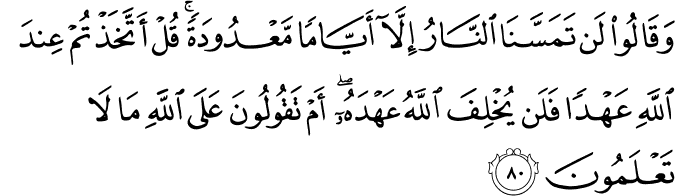 وَقَالُوا۟ لَن تَمَسَّنَا ٱلنَّارُ إِلَّآ أَيَّامًا مَّعْدُودَةً ۚ قُلْ أَتَّخَذْتُمْ عِندَ
ٱللَّهِ عَهْدًا فَلَن يُخْلِفَ ٱللَّهُ عَهْدَهُۥٓ ۖ أَمْ تَقُولُونَ عَلَى ٱللَّهِ مَا لَا
تَعْلَمُونَ ٨٠